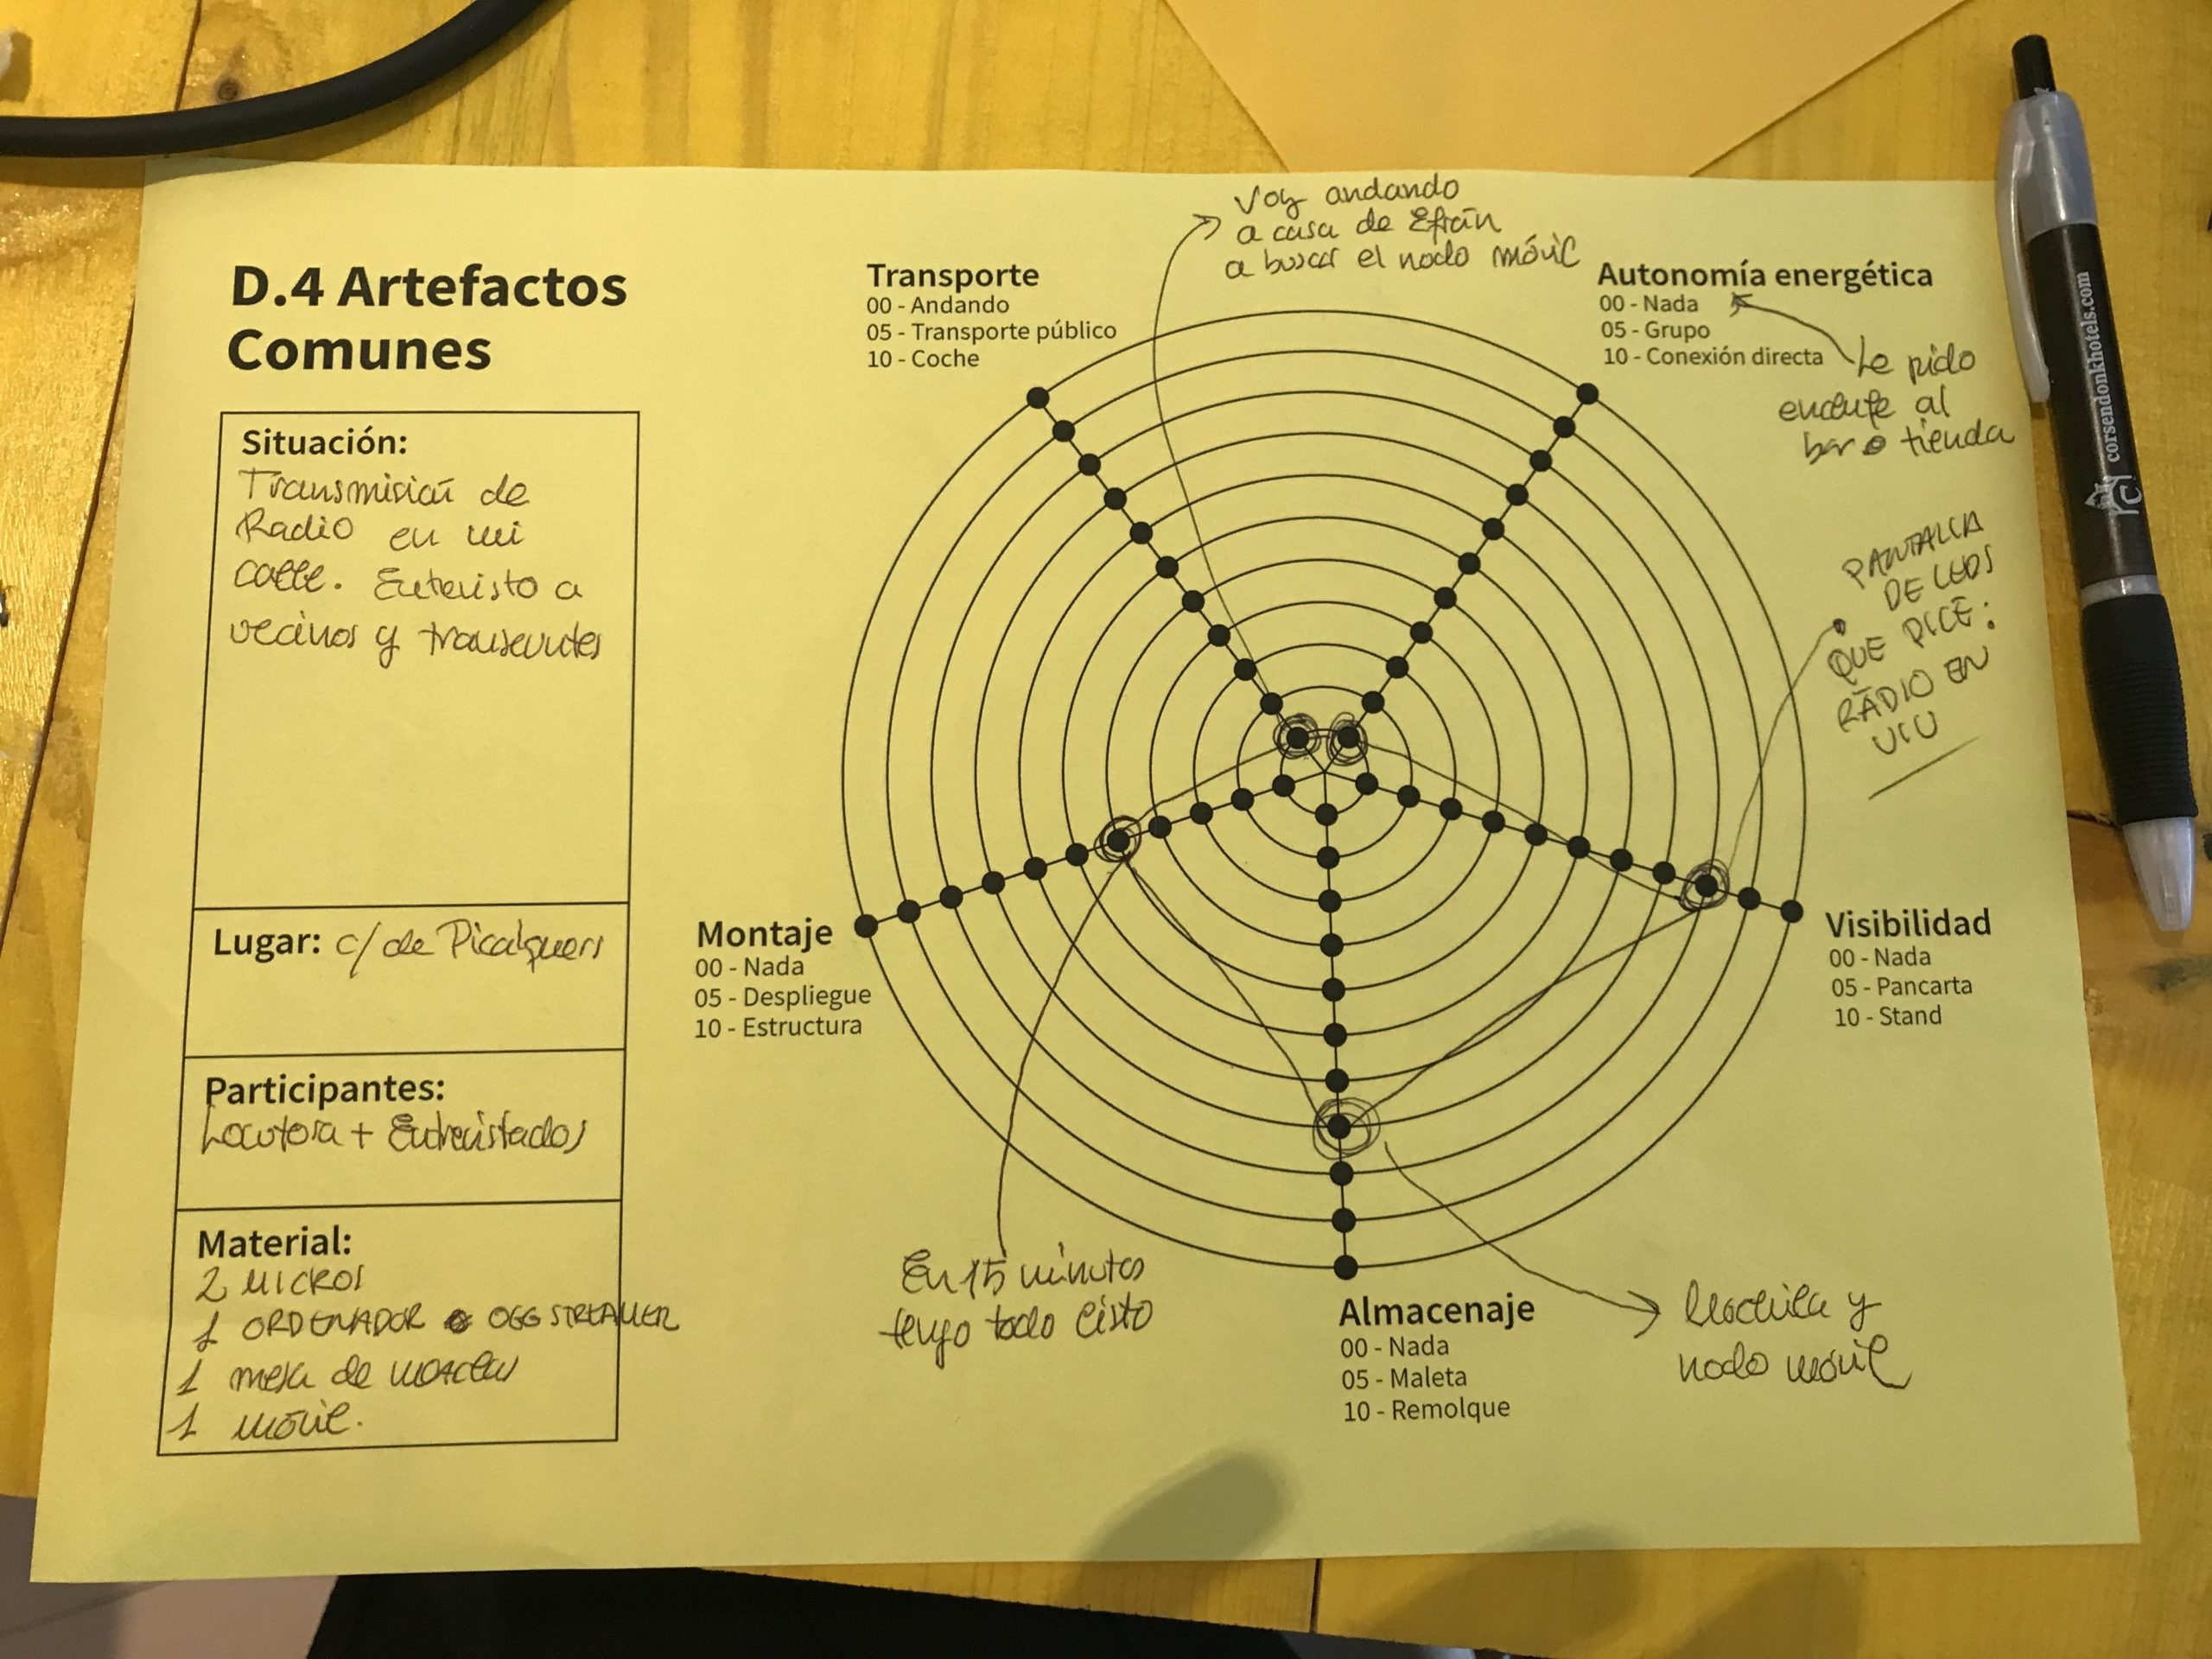 D.4 Artefactos
Comunes
Situación:
Transmisión de
Radio en mi
calle. Entevisto a
vecinos y transeuntes
Lugar: c/ de Picalquers
Participantes:
Locutora + Entrevistados
Material:
2 MICROS
1 ORDENADOR o OGG STREAMER
1 mesa de
1 móvil.
Voy andando
a casa de Efraín
a buscar el nodo móvil
Transporte
00 - Andando
05 - Transporte público
10 - Coche
Autonomía energética
00 - Nada
05 - Grupo
10 - Conexión directa
Le pido
enchufe al
bar o tienda
PANTALLA
DE LEDS
QUE DICE:
RADIO EN
VIVO
Montaje
00 - Nada
05 - Despliegue
10 - Estructura
Visibilidad
00 - Nada
05 - Pancarta
10 - Stand
En 15 minutos
tengo todo listo
Almacenaje
00 - Nada
05 - Maleta
10 - Remolque
Mochila y
nodo móvil
corsendonkhotels.com